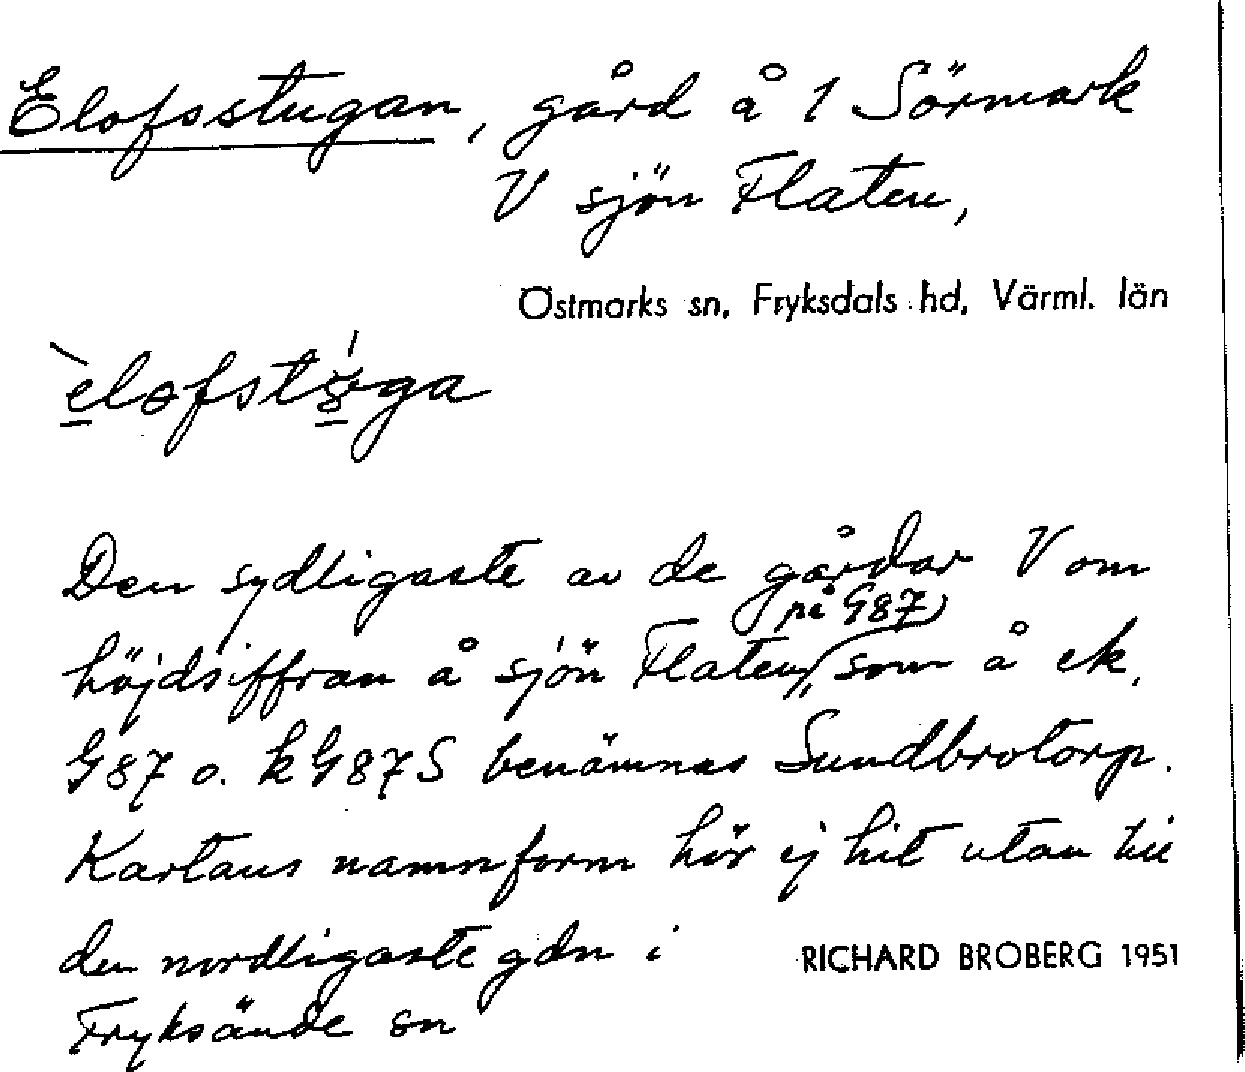 Elofsstugan, gård å 1 Sörmark
V sjön Flaten,
Östmarks sn, Fryksdals hd, Värml. län
Den sydligaste av de gårdar V om
på G87
höjdsiffran å sjön Flaten, som å ek.
G87 o. kG87S benämnes Sundbrotorp.
Kartans namnform hör ej hit utan till
den nordligaste gdn i
RICHARD BROBERG 1951
Fryksände sn